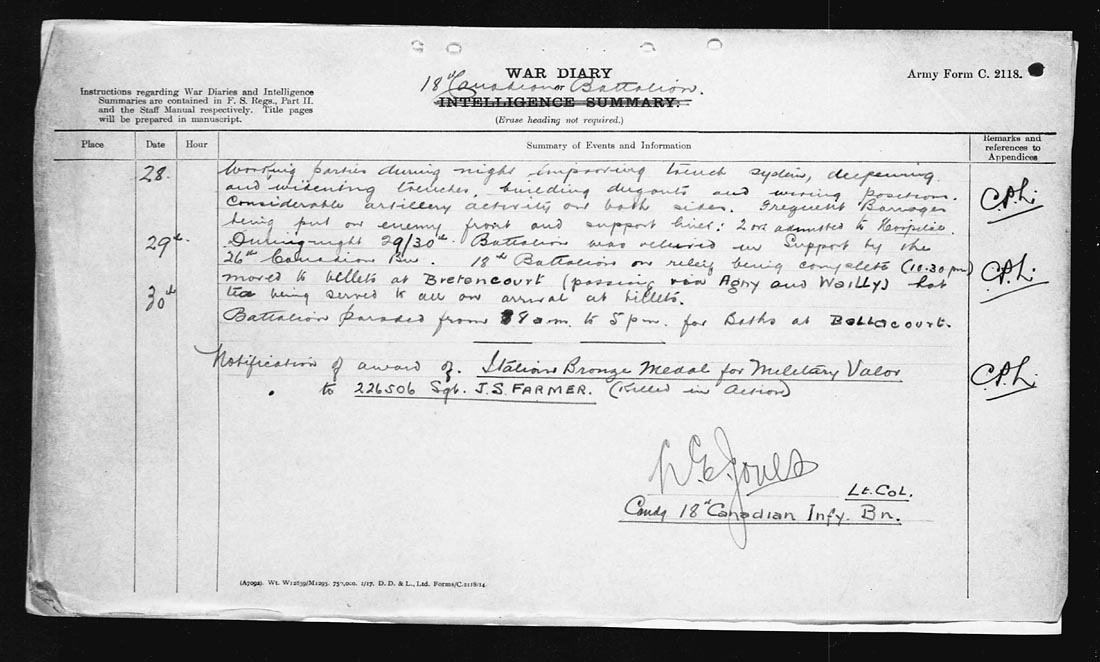 WAR DIARY
Army Form C. 2118.
18th Canadian or Battalion.
INTELLIGENCE SUMMARY.
(Erase heading not required.)
Instructions regarding War Diaries and Intelligence
Summaries are contained in F. S. Regs., Part II.
and the Staff Manual respectively. Title pages
will be prepared in manuscript.
Place Date Hour Summary of Events and Information Remarks and references to Appendices
28. Working parties during night improving trench system, deepening
and widening trenches, building dugouts and wiring positions.
Considerable artillery activity on both sides. Frequent Barrages
being put on enemy front and support lines: 2 ors admitted to Hospital.
29th. During night 29/30th Battalion was relieved in Support by the
26th Canadian Bn. 18th Battalion on relief being complete (10.30 pm)
moved to billets at Bretencourt (passing via Agny and Wailly) hot
tea being served to all on arrival at billets.
30th Battalion paraded from 8 am. to 5 pm. for Baths at Bellacourt.
Notification of award of. Italian Bronze Medal for Military Valor
to 226506 Sgt. J.S. FARMER. (Killed in Action)
L.E. Jones
Lt. Col.
Comdg 18th Canadian Infy. Bn.
(A7092). Wt. W12839/M1293. 750,000. 1/17. D. D. & L., Ltd. Forms/C.2118/14.